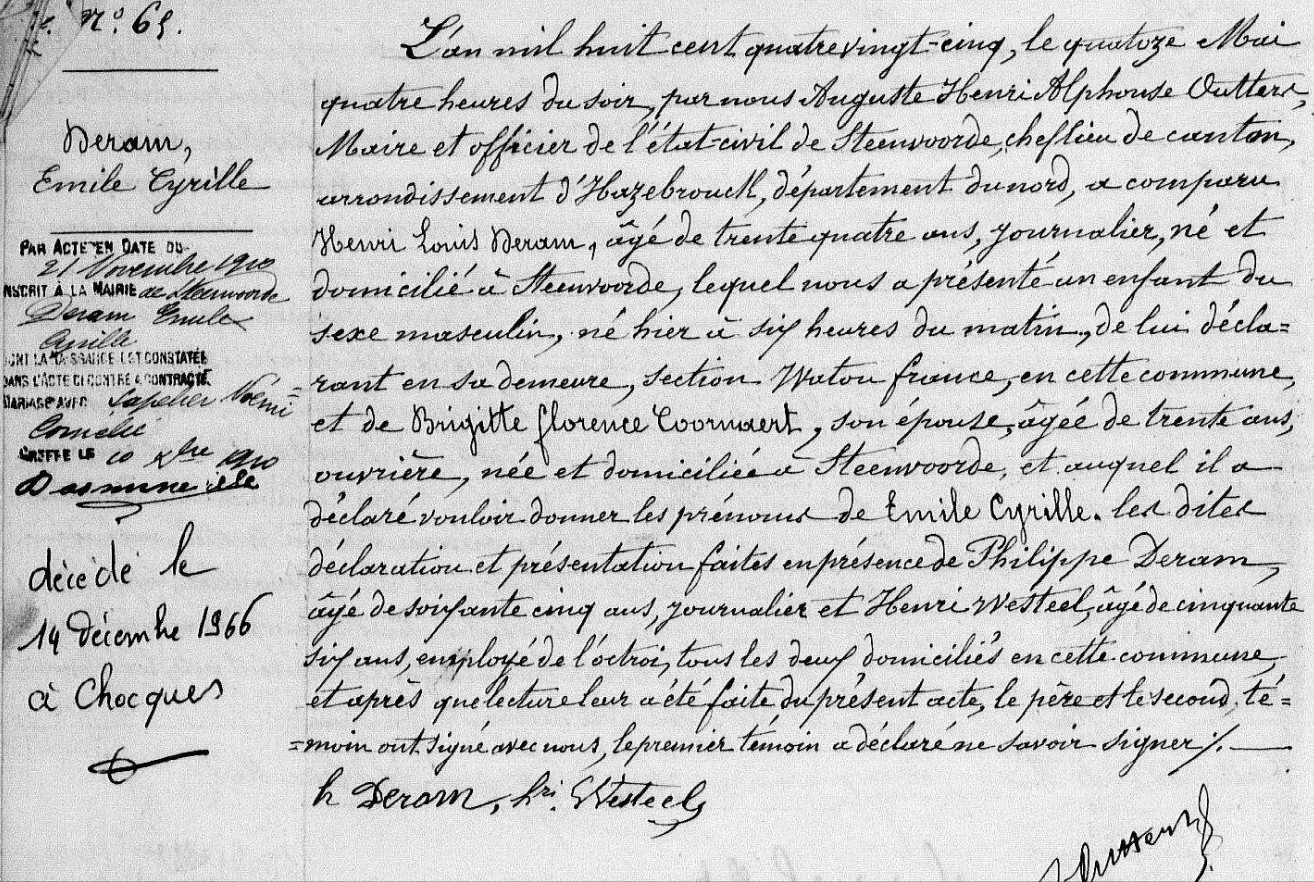 n.º 65.
Deram,
Emile Cyrille
PAR ACTE EN DATE DU
21 Novembre 1910
INSCRIT À LA MAIRIE de Steenvoorde
Deram Emile
Cyrille
DONT LA NAISSANCE EST CONSTATÉE
DANS L'ACTE CI CONTRE A CONTRACTÉ
MARIAGE AVEC Lapelier Noémi
Cornélie
GREFFE LE 10 Xbre 1910
décédé le
14 décembre 1966
à Chocques
L'an mil huit cent quatrevingt-cinq, le quatoze Mai
quatre heures du soir, par nous Auguste Henri Alphonse Outters,
Maire et officier de l'état-civil de Steenvoorde, cheflieu de canton,
arrondissement d'Hazebrouck, département du nord, a comparu
Henri Louis Deram, âgé de trente quatre ans, journalier, né et
domicilié à Steenvoorde, lequel nous a présenté un enfant du
sexe masculin, né hier à six heures du matin, de lui décla=
=rant en sa demeure, section Watou france, en cette commune,
et de Brigitte florence Coornaert, son épouse, âgée de trente ans,
ouvrière, née et domiciliée à Steenvoorde, et auquel il a
déclaré vouloir donner les prénoms de Emile Cyrille. les dites
déclaration et présentation faites en présence de Philippe Deram,
âgé de soixante cinq ans, journalier et Henri Westeel, âgé de cinquante
six ans, employé de l'octroi, tous les deux domiciliés en cette commune,
et après que lecture leur a été faite du présent acte, le père et le second té=
=moin ont signé avec nous, le premier témoin a déclaré ne savoir signer ./.
h Deram, hri. Westeel